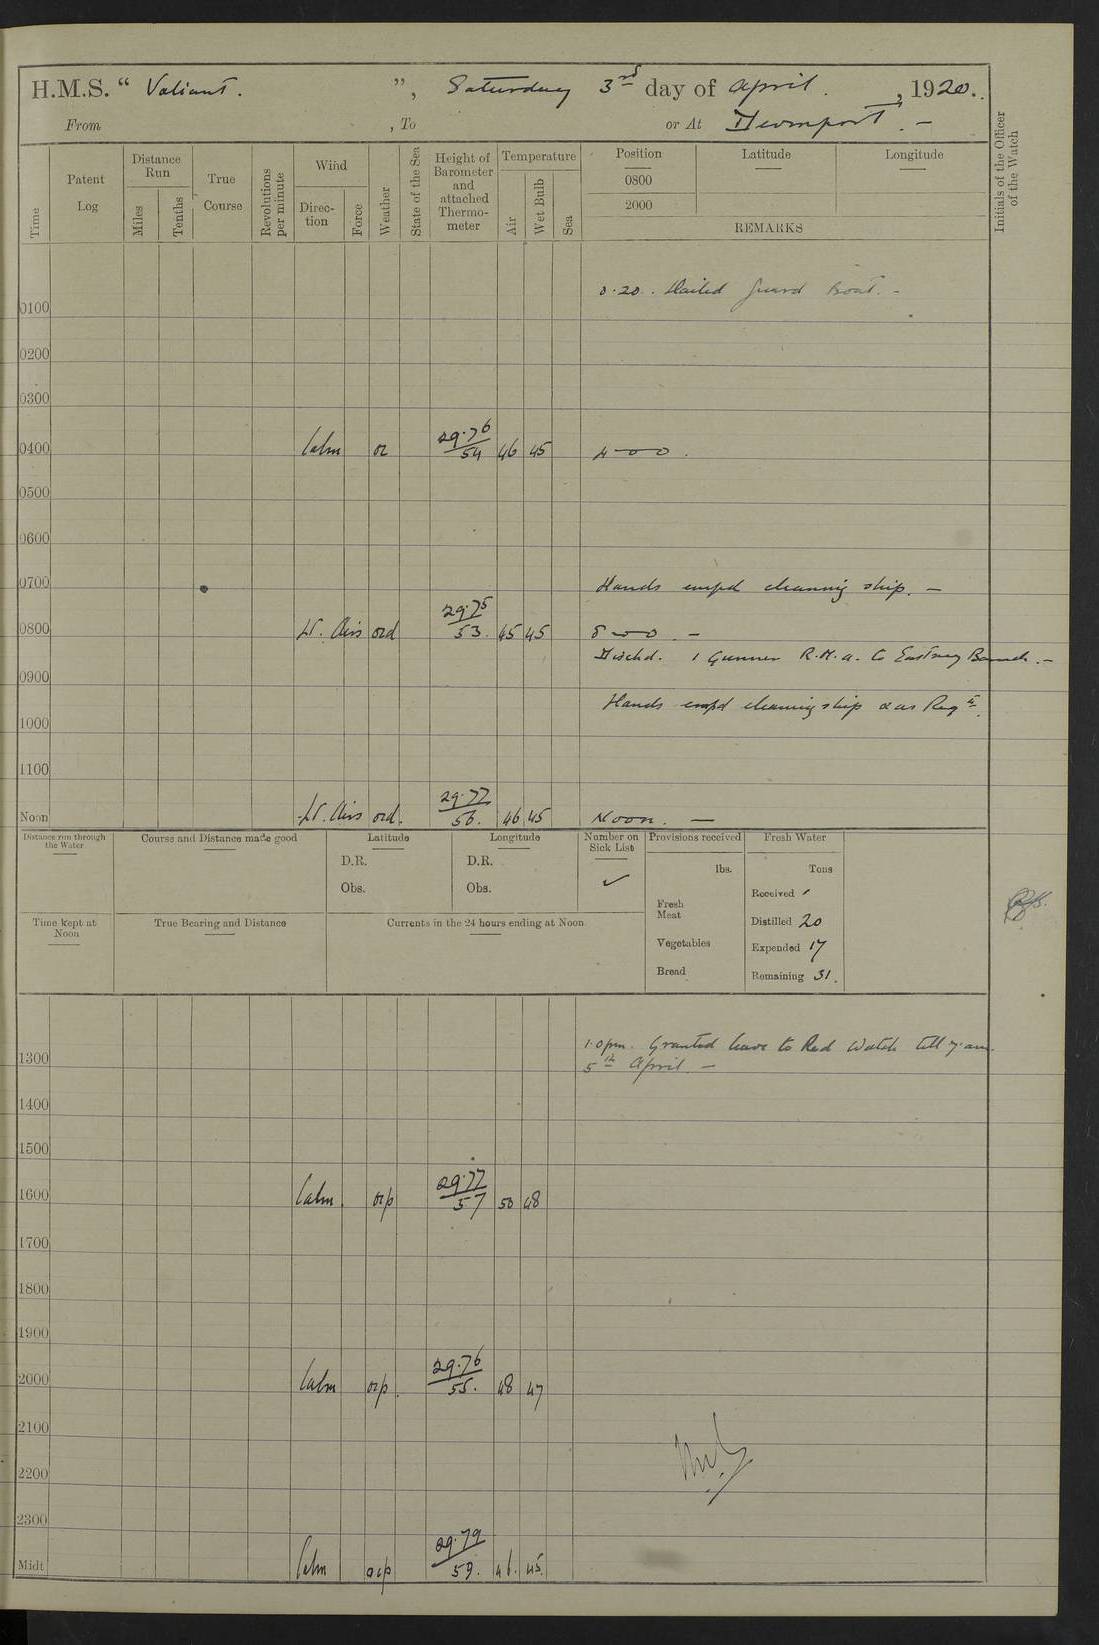 H.M.S. “ Valiant. ”, Saturday 3rd day of April. , 1920..
From , To or At Devonport. —
Time
Patent Log
Distance Run
Miles
Tenths
True Course
Revolutions per minute
Wind
Direc-tion
Force
Weather
State of the Sea
Height of Barometer and attached Thermo-meter
Temperature
Air
Wet Bulb
Sea
Position
0800
2000
Latitude
Longitude
REMARKS
Initials of the Officer of the Watch
0.20. Hailed Guard Boat. –
0100
0200
0300
0400 Calm oc 29.76/54 46 45 4-00.
0500
0600
0700 Hands empd cleaning ship. —
0800 Lt. Airs ocd 29.75/53. 45 45 8-00. —
Dischd. 1 Gunner R.M.A. to Eastney . —
0900
Hands empd cleaning ship & as Reqte.
1000
1100
Noon Lt. Airs ocd. 29.77/56. 46 45 Noon. —
Distance run through the Water
Course and Distance made good
Latitude
D.R.
Obs.
Longitude
D.R.
Obs.
Number on Sick List
✓
Provisions received
lbs.
Fresh Meat
Vegetables
Bread
Fresh Water
Tons
Received ′
Distilled 20
Expended 17
Remaining 31.
Time kept at Noon
True Bearing and Distance
Currents in the 24 hours ending at Noon
1.0pm. Granted leave to Red Watch till 7.am.
1300 5th April. —
1400
1500
1600 Calm. ocp 29.77/57 50 48
1700
1800
1900
2000 Calm ocp. 29.76/55. 48 47
2100
2200
2300
Midt Calm ocp 29.79/59. 46. 45.